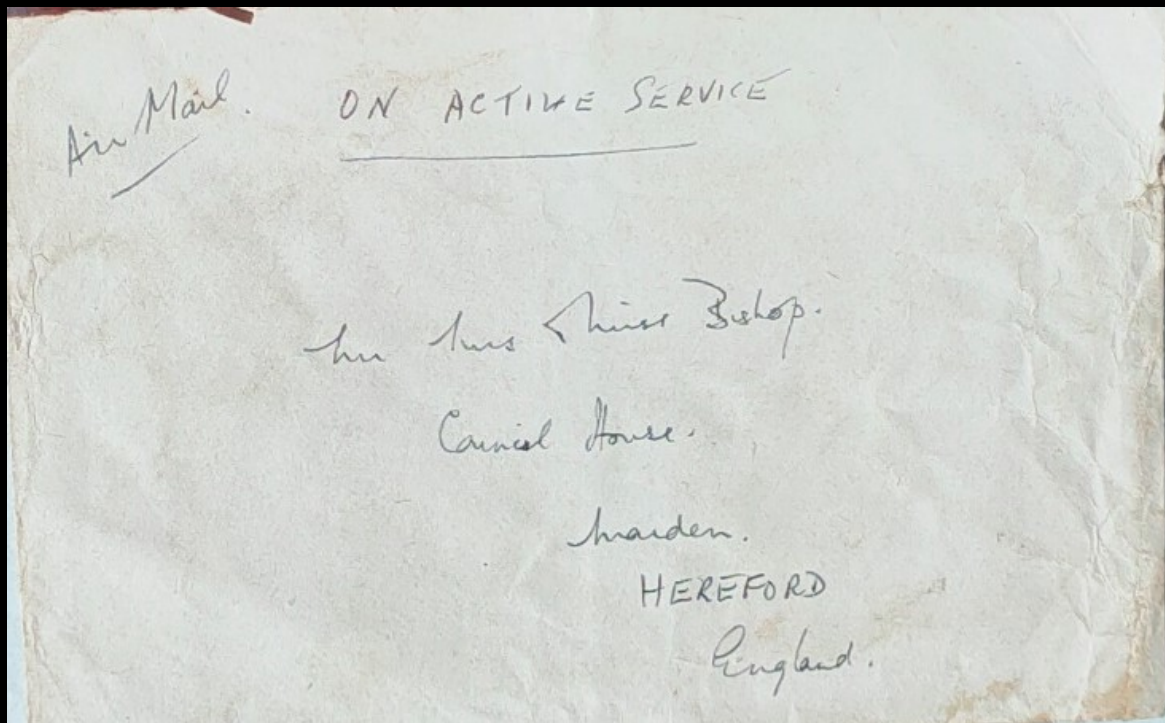 Air Mail. ON ACTIVE SERVICE
Mr Mrs & Miss Bishop.
Council House.
Marden.
HEREFORD
England.